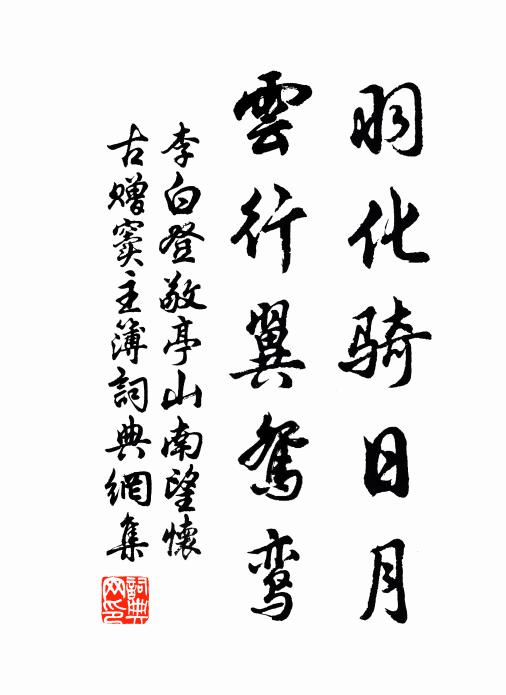 羽化骑日月
雲行翼鸳鸾
李白登敬亭山南望懷
古赠窦主簿詞典網集
詞典网印